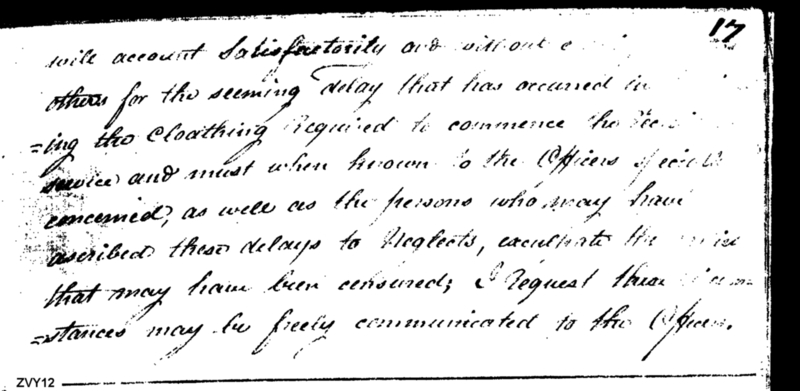 17
will account Satisfactorily and without
others for the seeming delay that has occurred in
=ing the Cloathing Required to commence the
service and must when known to the Officers
concerned, as well as the persons who may have
ascribed these delays to Neglects, exculpate the
that may have been censured; I Request these
=stances may be freely communicated to the Officers.
ZVY12